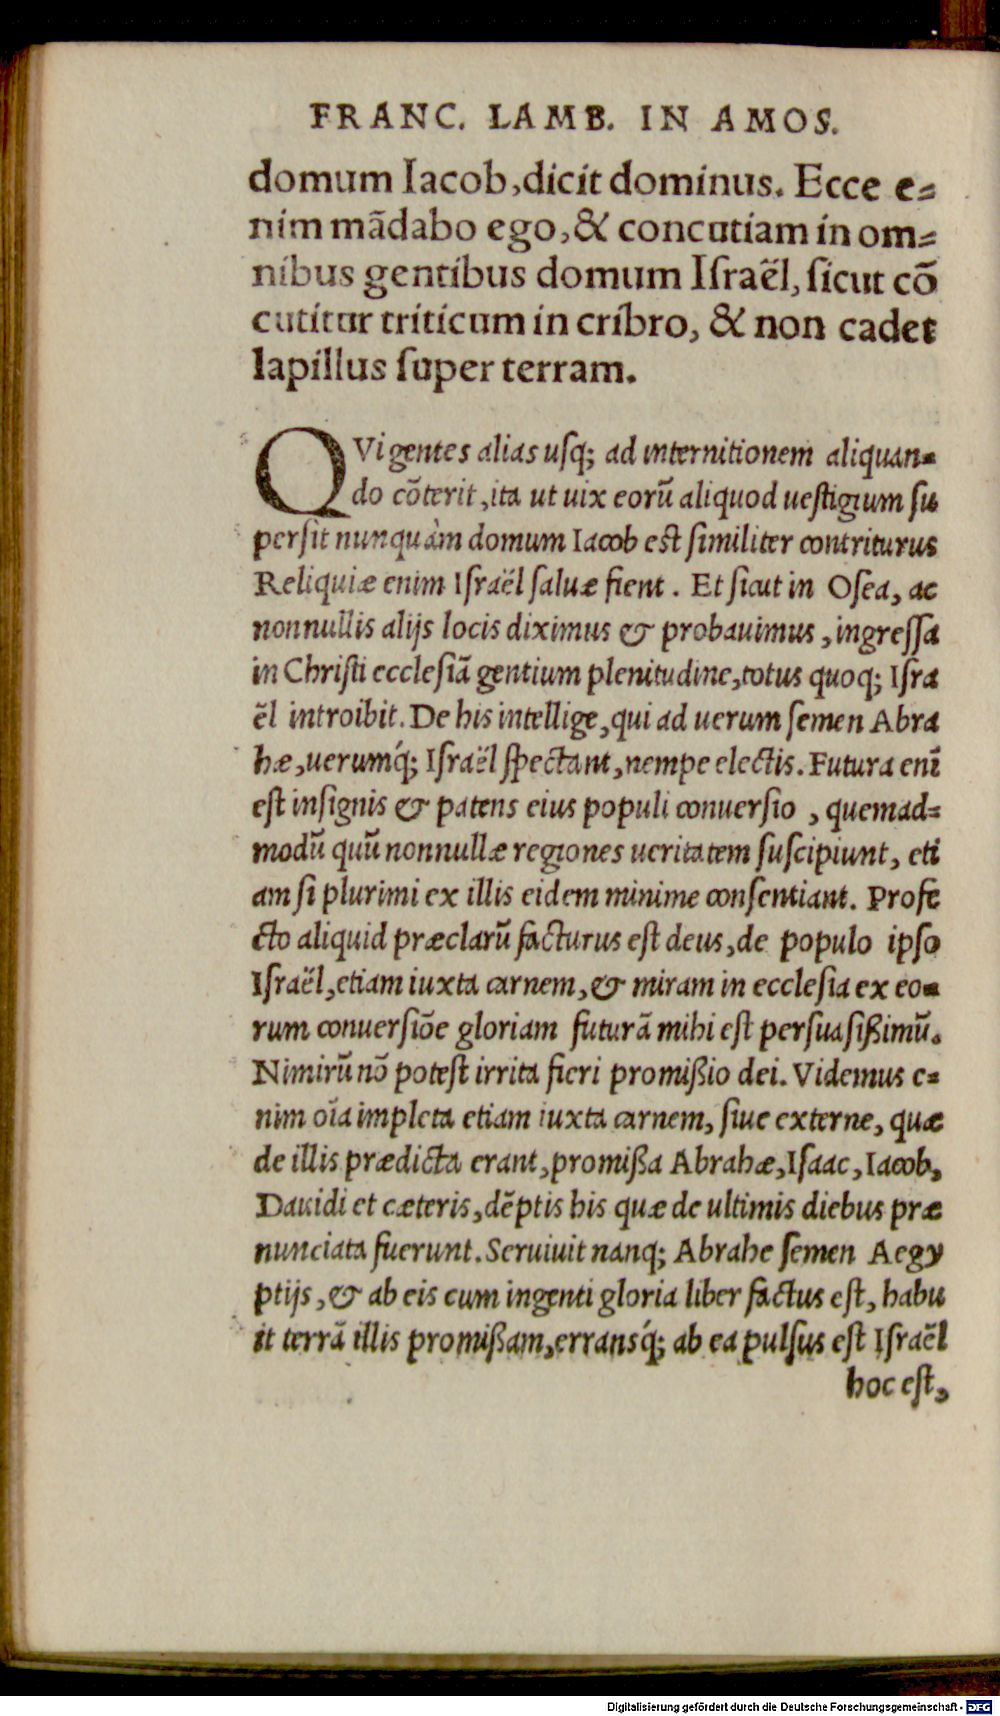 FRANC. LAMB. IN AMOS.
domum Iacob, dicit dominus. Ecce e=
nim mãdabo ego, & concutiam in om=
nibus gentibus domum Iſraẽl, ſicut cõ
cutitur triticum in cribro, & non cadet
lapillus ſuper terram.
QVi gentes alias uſq; ad internitionem aliquan=
do cõterit, ita ut uix eorũ aliquod ueſtigium ſu
perſit nunquàm domum Iacob eſt ſimiliter contriturus
Reliquiæ enim Iſraël ſaluæ fient. Et ſicut in Oſea, ac
nonnullis alijs locis diximus & probauimus, ingreſſa
in Chriſti eccleſiã gentium plenitudine, totus quoq; Iſra
ẽl introibit. De his intellige, qui ad uerum ſemen Abra
hæ, uerumq́; Iſraël ſpectant, nempe electis. Futura enĩ
eſt inſignis & patens eius populi conuerſio, quemad=
modũ quũ nonnullæ regiones ueritatem ſuſcipiunt, eti
am ſi plurimi ex illis eidem minime conſentiant. Profe
cto aliquid præclarũ facturus eſt deus, de populo ipſo
Iſraël, etiam iuxta carnem, & miram in eccleſia ex eo=
rum conuerſiõe gloriam futurã mihi eſt perſuaſißimũ.
Nimirũ nõ poteſt irrita fieri promißio dei. Videmus e=
nim oĩa impleta etiam iuxta carnem, ſiue externe, quæ
de illis prædicta erant, promißa Abrahæ, Iſaac, Iacob,
Dauidi et cæteris, dẽptis his quæ de ultimis diebus præ
nunciata fuerunt. Seruiuit nanq; Abrahe ſemen Aegy
ptijs, & ab eis cum ingenti gloria liber factus eſt, habu
it terrã illis promißam, erransq́; ab ea pulſus eſt Iſraẽl
hoc eſt,
Digitalisierung gefördert durch die Deutsche Forschungsgemeinschaft - DFG